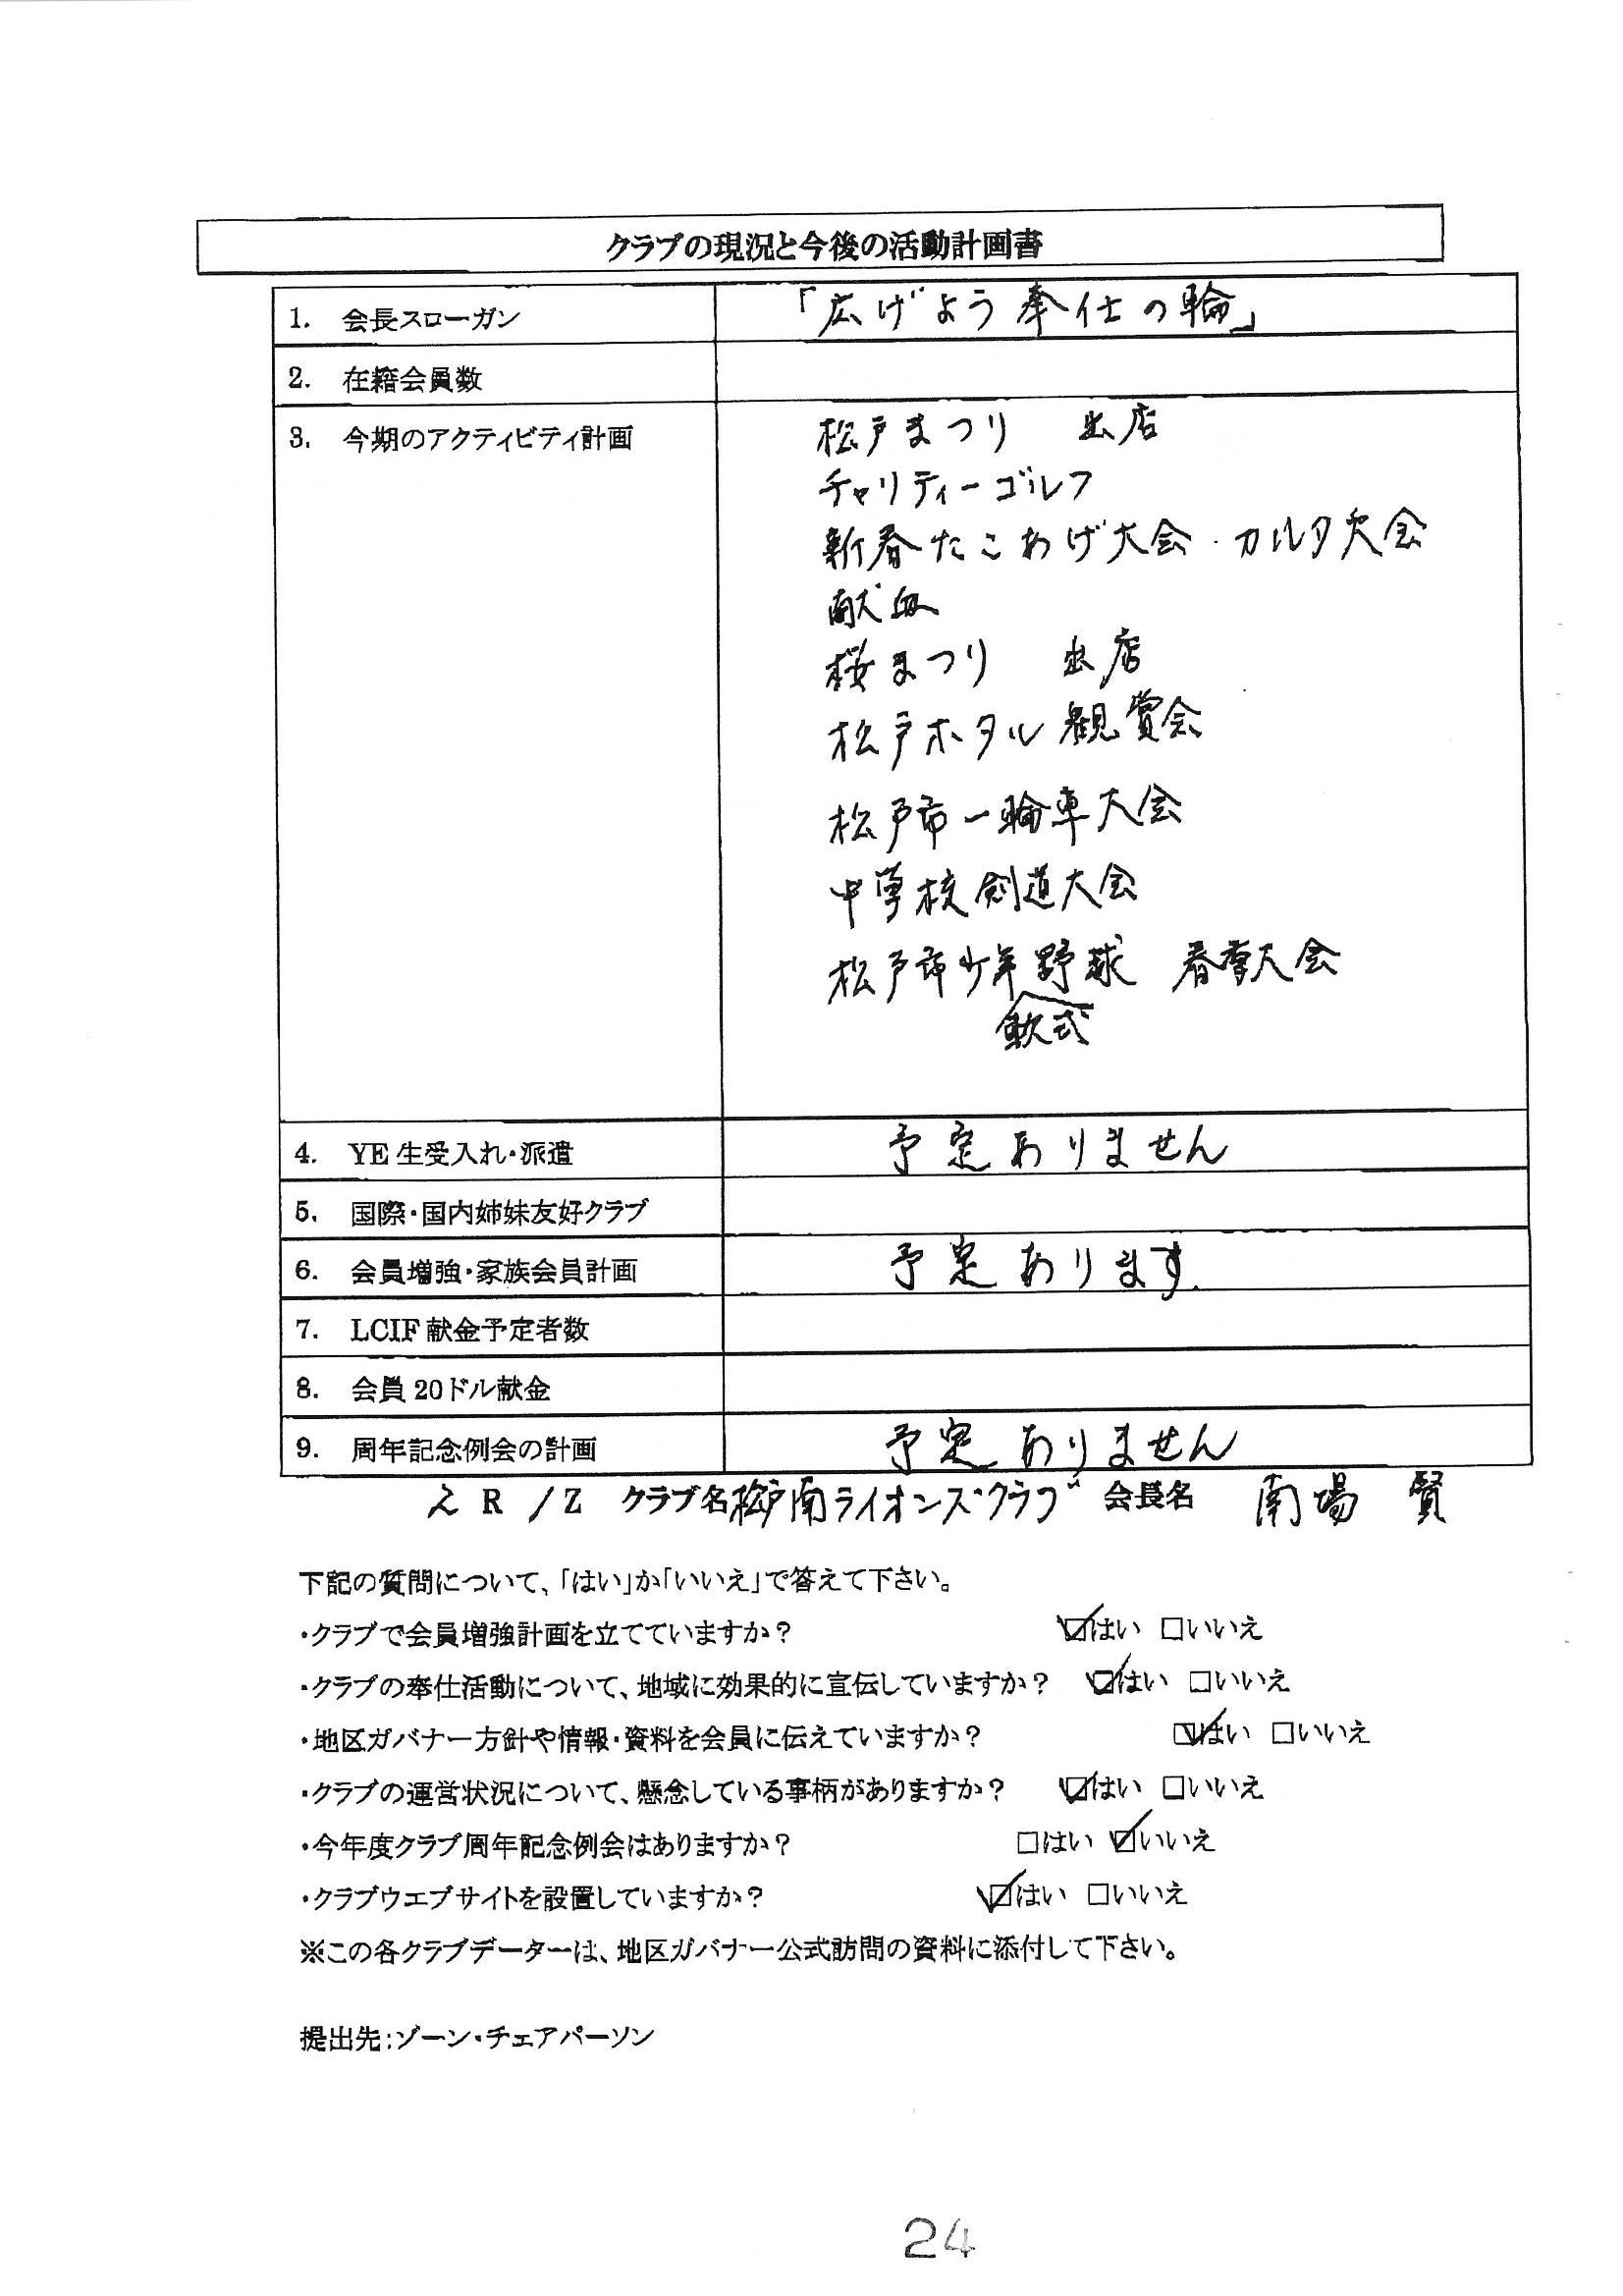 クラブの現況と今後の活動計画書
1. 会長スローガン 「広げよう奉仕の輪」
2. 在籍会員数
3. 今期のアクティビティ計画 松戸まつり 出店
チャリティーゴルフ
新春たこあげ大会・カルタ大会
献血
桜まつり 出店
松戸ホタル観賞会
松戸市一輪車大会
中学校剣道大会
松戸市少年野球 春季大会
軟式
4. YE生受入れ・派遣 予定ありません
5. 国際・国内姉妹友好クラブ
6. 会員増強・家族会員計画 予定あります.
7. LCIF献金予定者数
8. 会員20ドル献金
9. 周年記念例会の計画 予定ありません
2 R 1 Z クラブ名 松戸南ライオンズクラブ 会長名 南場 賢
下記の質問について、「はい」か「いいえ」で答えて下さい。
・クラブで会員増強計画を立てていますか? ☑はい □いいえ
・クラブの奉仕活動について、地域に効果的に宣伝していますか? ☑はい □いいえ
・地区ガバナー方針や情報・資料を会員に伝えていますか? ☑はい □いいえ
・クラブの運営状況について、懸念している事柄がありますか? ☑はい □いいえ
・今年度クラブ周年記念例会はありますか? □はい ☑いいえ
・クラブウエブサイトを設置していますか? ☑はい □いいえ
※この各クラブデーターは、地区ガバナー公式訪問の資料に添付して下さい。
提出先:ゾーン・チェアパーソン
24